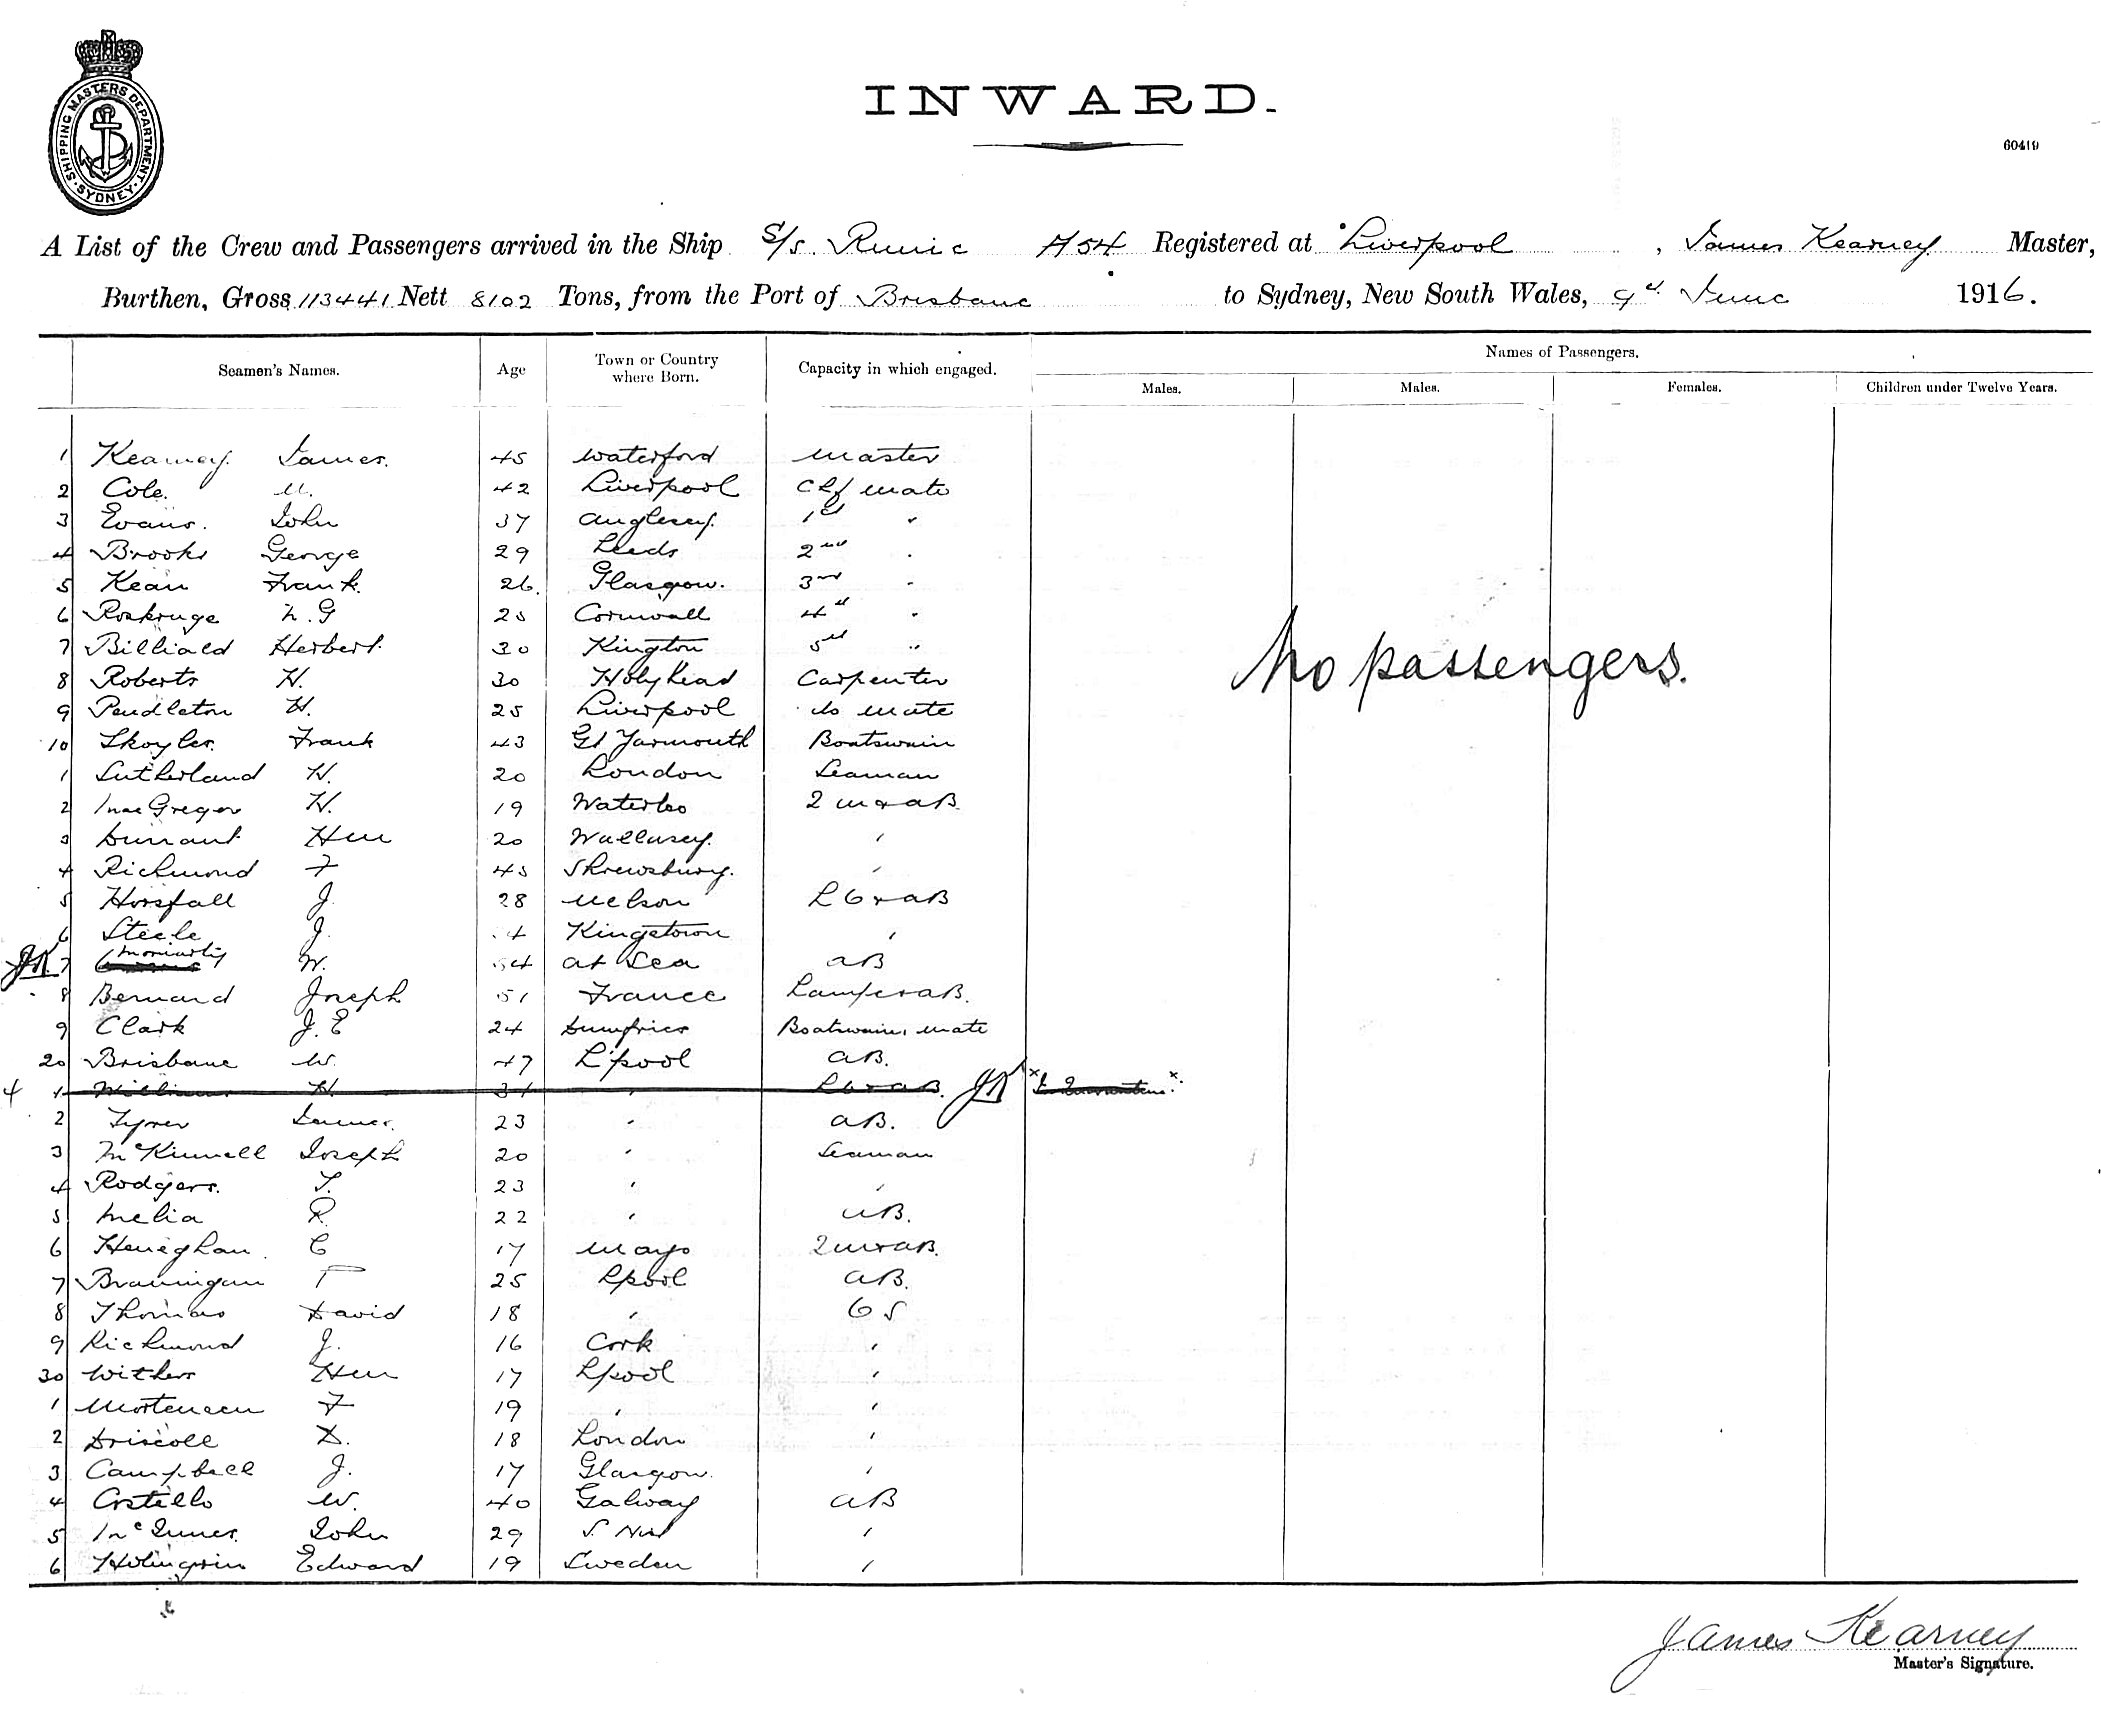 SHIPPING MASTERS DEPARTMENT. SYDNEY.
INWARD.
60419
A List of the Crew and Passengers arrived in the Ship S/s. Runic A54 Registered at Liverpool, James Kearney Master,
Burthen, Gross 113441 Nett 8102 Tons, from the Port of Brisbane to Sydney, New South Wales, 9th June 1916.
Seamen's Names. Age Town or Country where Born. Capacity in which engaged. Names of Passengers.
Males. Males. Females. Children under Twelve Years.
1 Kearney. James. 45 Waterford Master
2 Cole. M. 42 Liverpool Chf Mate
3 Evans. John 37 Anglesey. 1st "
4 Brooks George 29 Leeds 2nd "
5 Kean Frank. 26. Glasgow. 3rd "
6 Roskruge 25 Cornwall 4th "
7 Billiald Herbert. 30 Kington 5th "
No passengers.
8 Roberts H. 30 Holyhead Carpenter
9 Pendleton H. 25 Liverpool do Mate
10 Skoyles. Frank 43 Gt Yarmouth Boatswain
1 Sutherland H. 20 London Seaman
2 MacGregor H. 19 Waterloo 2 M & AB
3 Durrant Hen 20 Wallasey. "
4 Richmond F 45 Shrewsbury. "
5 Horsfall J. 28 Nelson L6 & AB
6 Steele J. Kingstown "
JK 7 Moriarty W. 54 at Sea AB
8 Bernard Joseph 51 France Lamps & AB.
9 Clark J. E 24 Dumfries Boatswains Mate
20 Brisbane W. 47 L'pool AB.
1 Williams H. 31 " L6 & AB. JK
2 Tyrer James. 23 " AB.
3 McKinnell Joseph 20 " Seaman
4 Rodgers. T. 23 " "
5 Melia R. 22 " AB.
6 Heneghan. C 17 Mayo 2M & AB.
7 Brannigan T 25 Lpool AB.
8 Thomas David 18 " O S
9 Richmond J. 16 Cork "
30 Withers Hen 17 Lpool "
1 Mortensen F 19 " "
2 Driscoll D. 18 London "
3 Campbell J. 17 Glasgow. "
4 Costello W. 40 Galway AB
5 McInnes. John 29 "
6 Edward 19 Sweden "
James Kearney
Master's Signature.